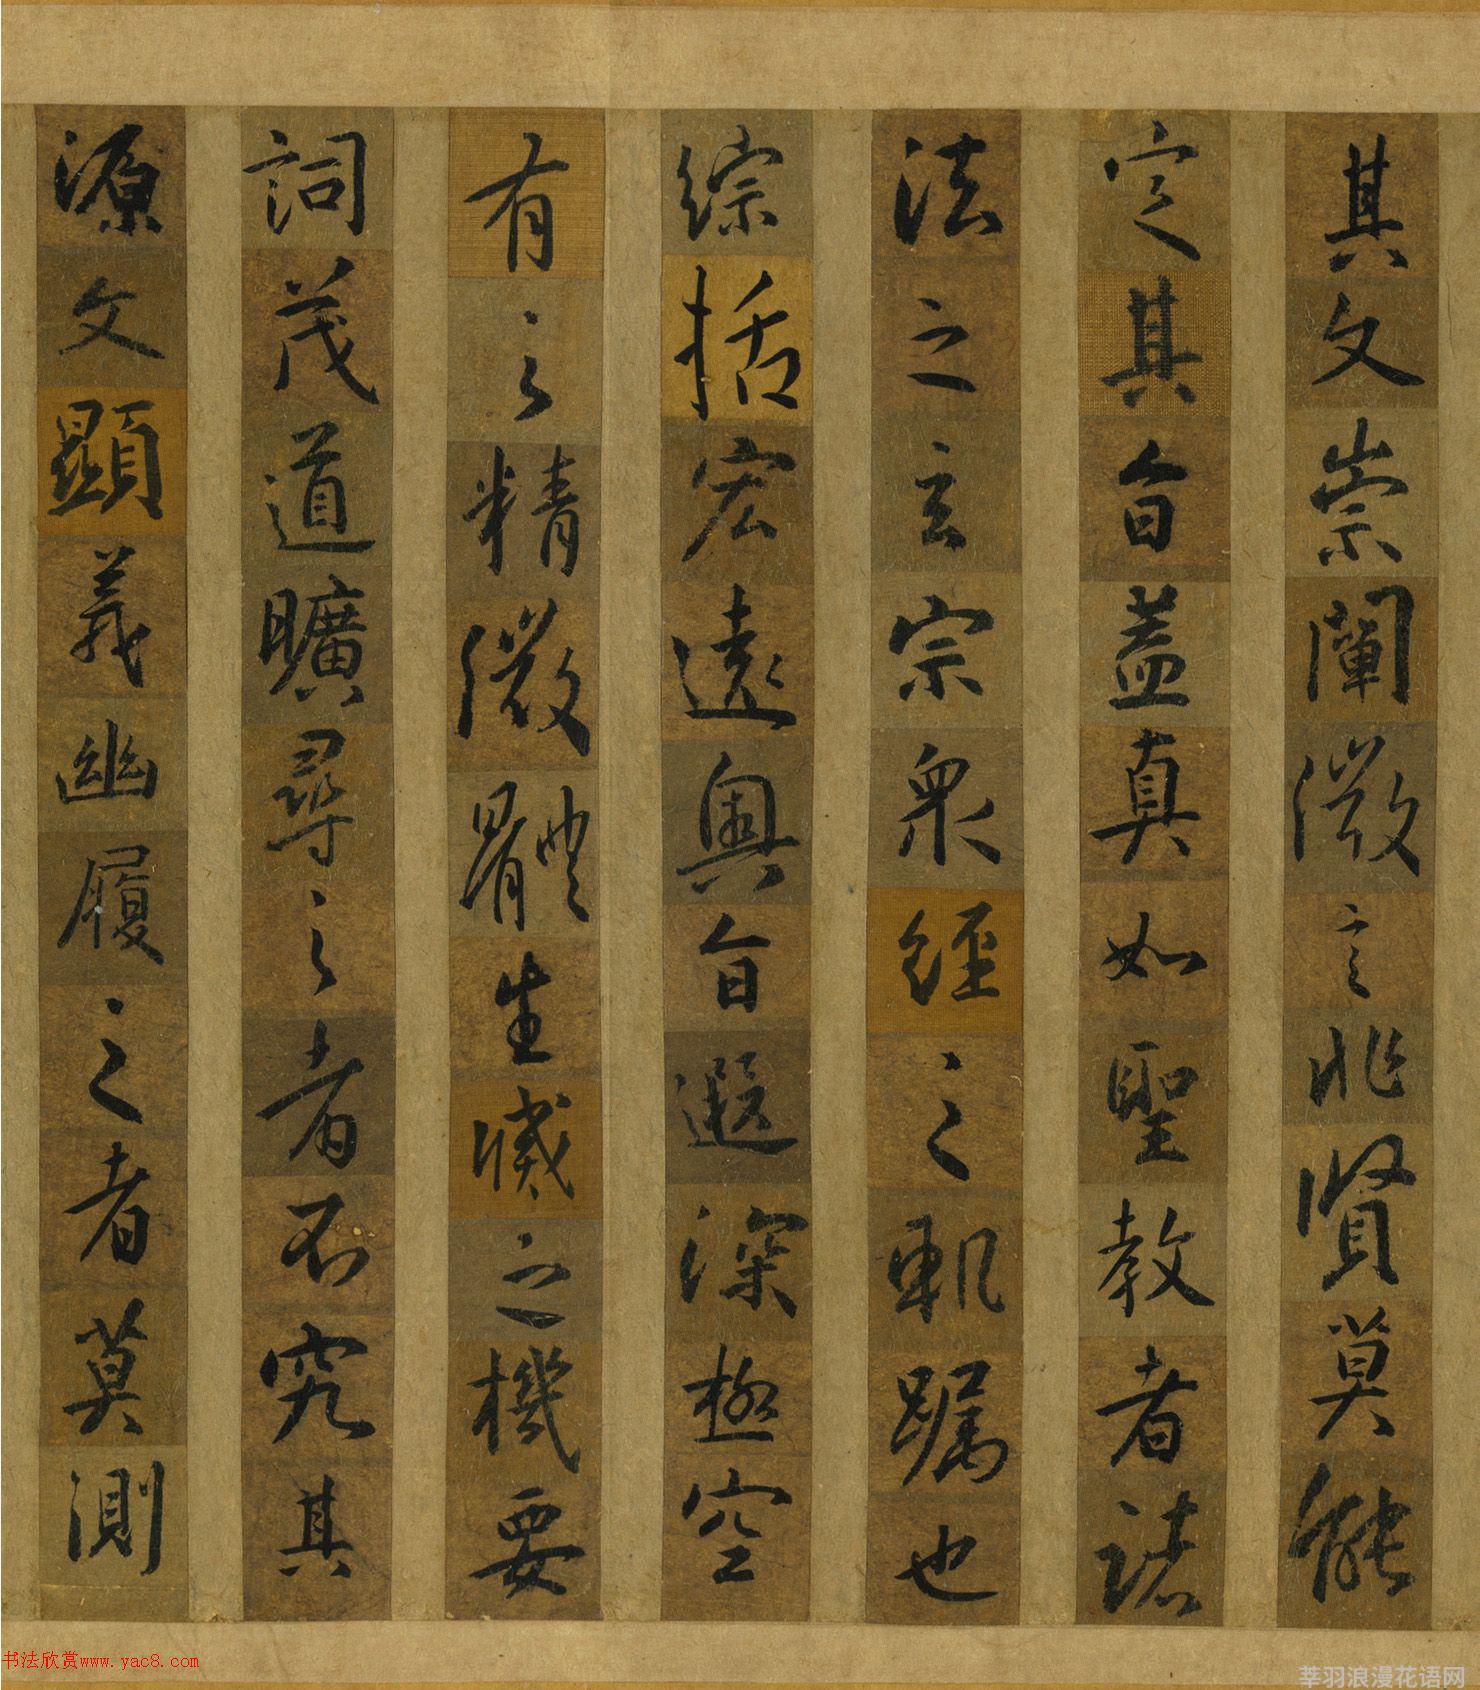 其文崇闡微言非賢莫能
定其旨盖真如聖教者諸
法之玄宗衆經之軌躅也
綜括宏遠奧旨遐深極空
有之精微體生滅之機要
詞茂道曠尋之者不究其
源文顯義幽履之者莫測
书法欣赏www.yac8.com
莘羽浪漫花语网